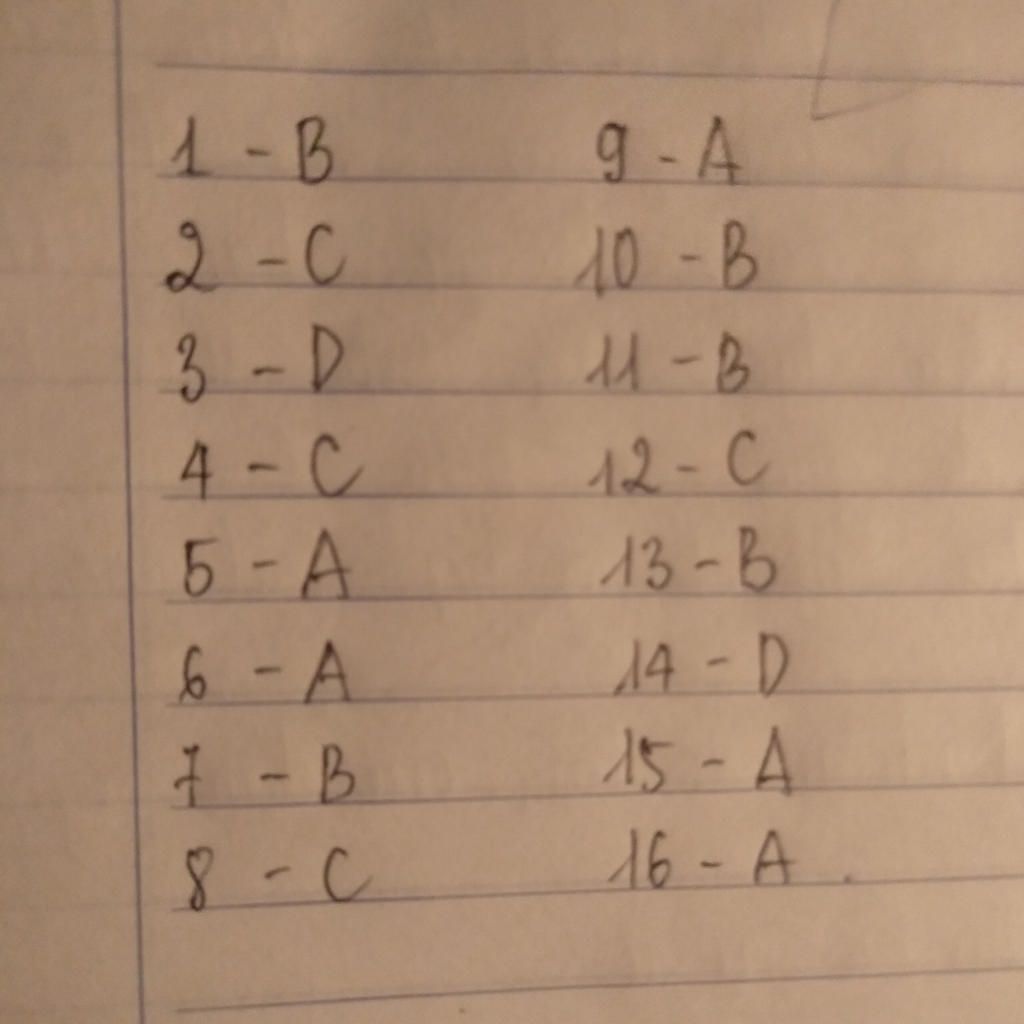 1 - B
2 - C
3 - D
4 - C
5 - A
6 - A
7 - B
8 - C
9 - A
10 - B
11 - B
12 - C
13 - B
14 - D
15 - A
16 - A .